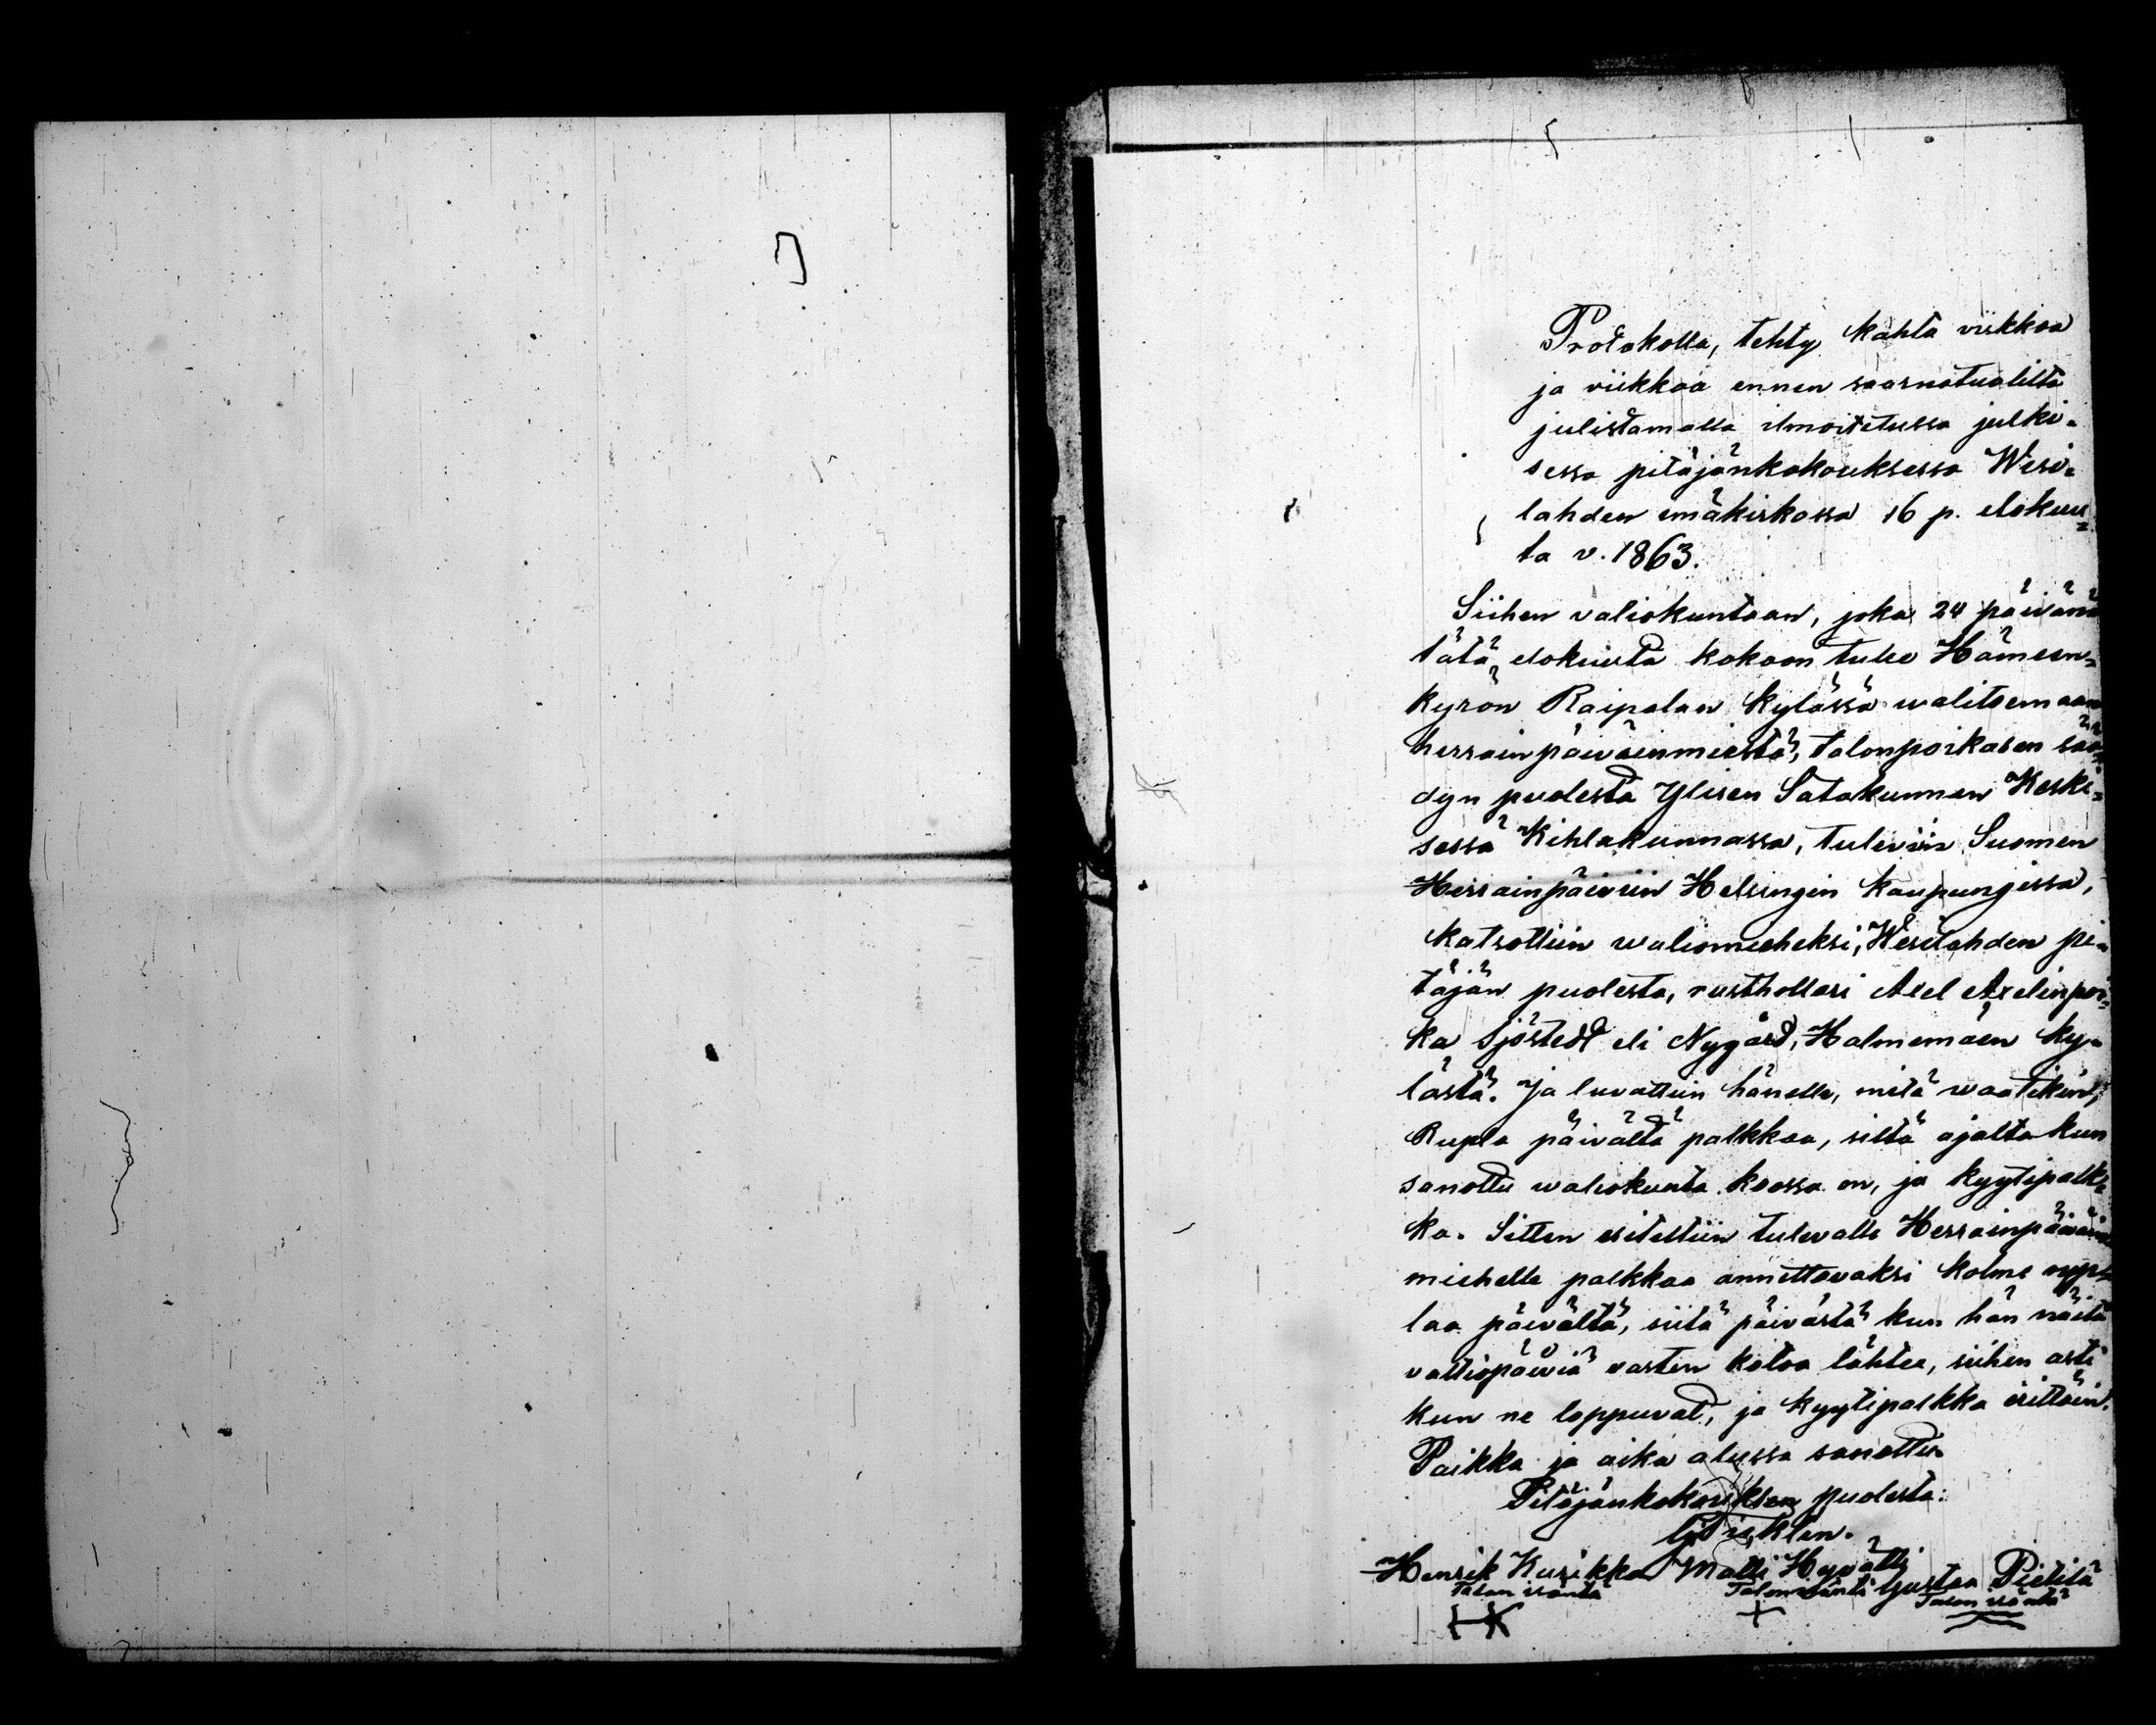 Protokolla, tehty kahta viikkoa
ja viikkoa ennen saarnatuolilta
julistamalla ilmoitetussa julki-
sessa pitäjänkokouksessa Wesi-
lahden emäkirkossa 16 p. elokuu-
ta v. 1863.
Siihen valiokuntaan, joka 24 päivänä
tätä elokuuta kokoon tulee Hämeen-
kyrön Raipalan kylässä walitsemaan
herrainpäiväinmiestä, talonpoikasen sää-
dyn puolesta Ylisen Satakunnan Keski-
sessä Kihlakunnassa, tuleviin Suomen
Herrainpäiviin Helsingin kaupungissa,
katsottiin waliomieheksi, Wesilahden pi-
täjän puolesta, rusthollari Axel Axelinpoi-
ka Sjöstedt eli Nygård, Halmemäen ky-
lästä. Ja luvattiin hänelle, mitä waatikin,
Rupla päivältä palkkaa, siltä ajalta kun
sanottu waliokunta koossa on, ja kyytipalk-
ka. Sitten esiteltiin tulevalle Herrainpäiväin
miehelle palkkaa annettavaksi kolme rup-
laa päivältä, siitä päivästä kun hän näitä
valtiopäiviä varten kotoa lähtee, siihen asti
kun ne loppuvat, ja kyytipalkka erittäin.
Paikka ja aika alussa sanottu.
Pitäjänkokouksen puolesta:
Henrik Kurikka Matti Hyvätti Gustaa Pietilä
Talon isäntä Talon isäntä Talon isäntä
HK +